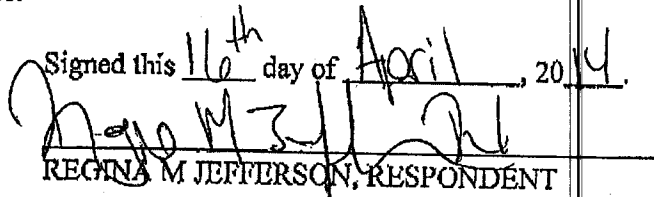 Signed this 16th day of April, 2014.
REGINA M JEFFERSON, RESPONDENT